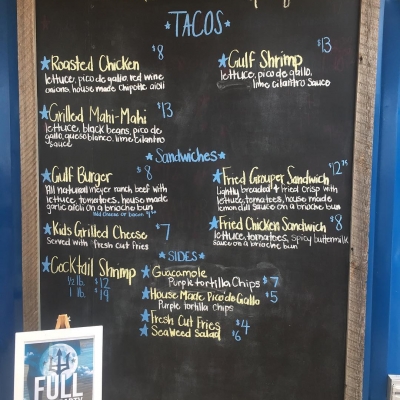 TACOS
Roasted Chicken $8
lettuce, pico de gallo, red wine
onions, house made chipotle aioli
Gulf Shrimp $13
lettuce, pico de gallo,
lime cilantro sauce
Grilled Mahi-Mahi $13
lettuce, black beans, pico de
gallo, queso blanco, lime cilantro
sauce
Sandwiches
Gulf Burger $8
All natural meyer ranch beef with
lettuce, tomatoes, house made
garlic aioli on a brioche bun
Add cheese or bacon
Kids Grilled Cheese $7
Served with fresh cut fries
Fried Grouper Sandwich
Lightly breaded & fried crisp with
lettuce, tomatoes, house made
lemon dill sauce on a brioche bun
Fried Chicken Sandwich $8
lettuce, tomatoes, spicy buttermilk
sauce on a brioche bun
Cocktail Shrimp
1/2 lb. $12
1 lb. $19
SIDES
Guacamole
Purple tortilla Chips $7
House Made Pico de Gallo $5
Purple tortilla chips
Fresh Cut Fries $4
Seaweed Salad $6
FULL